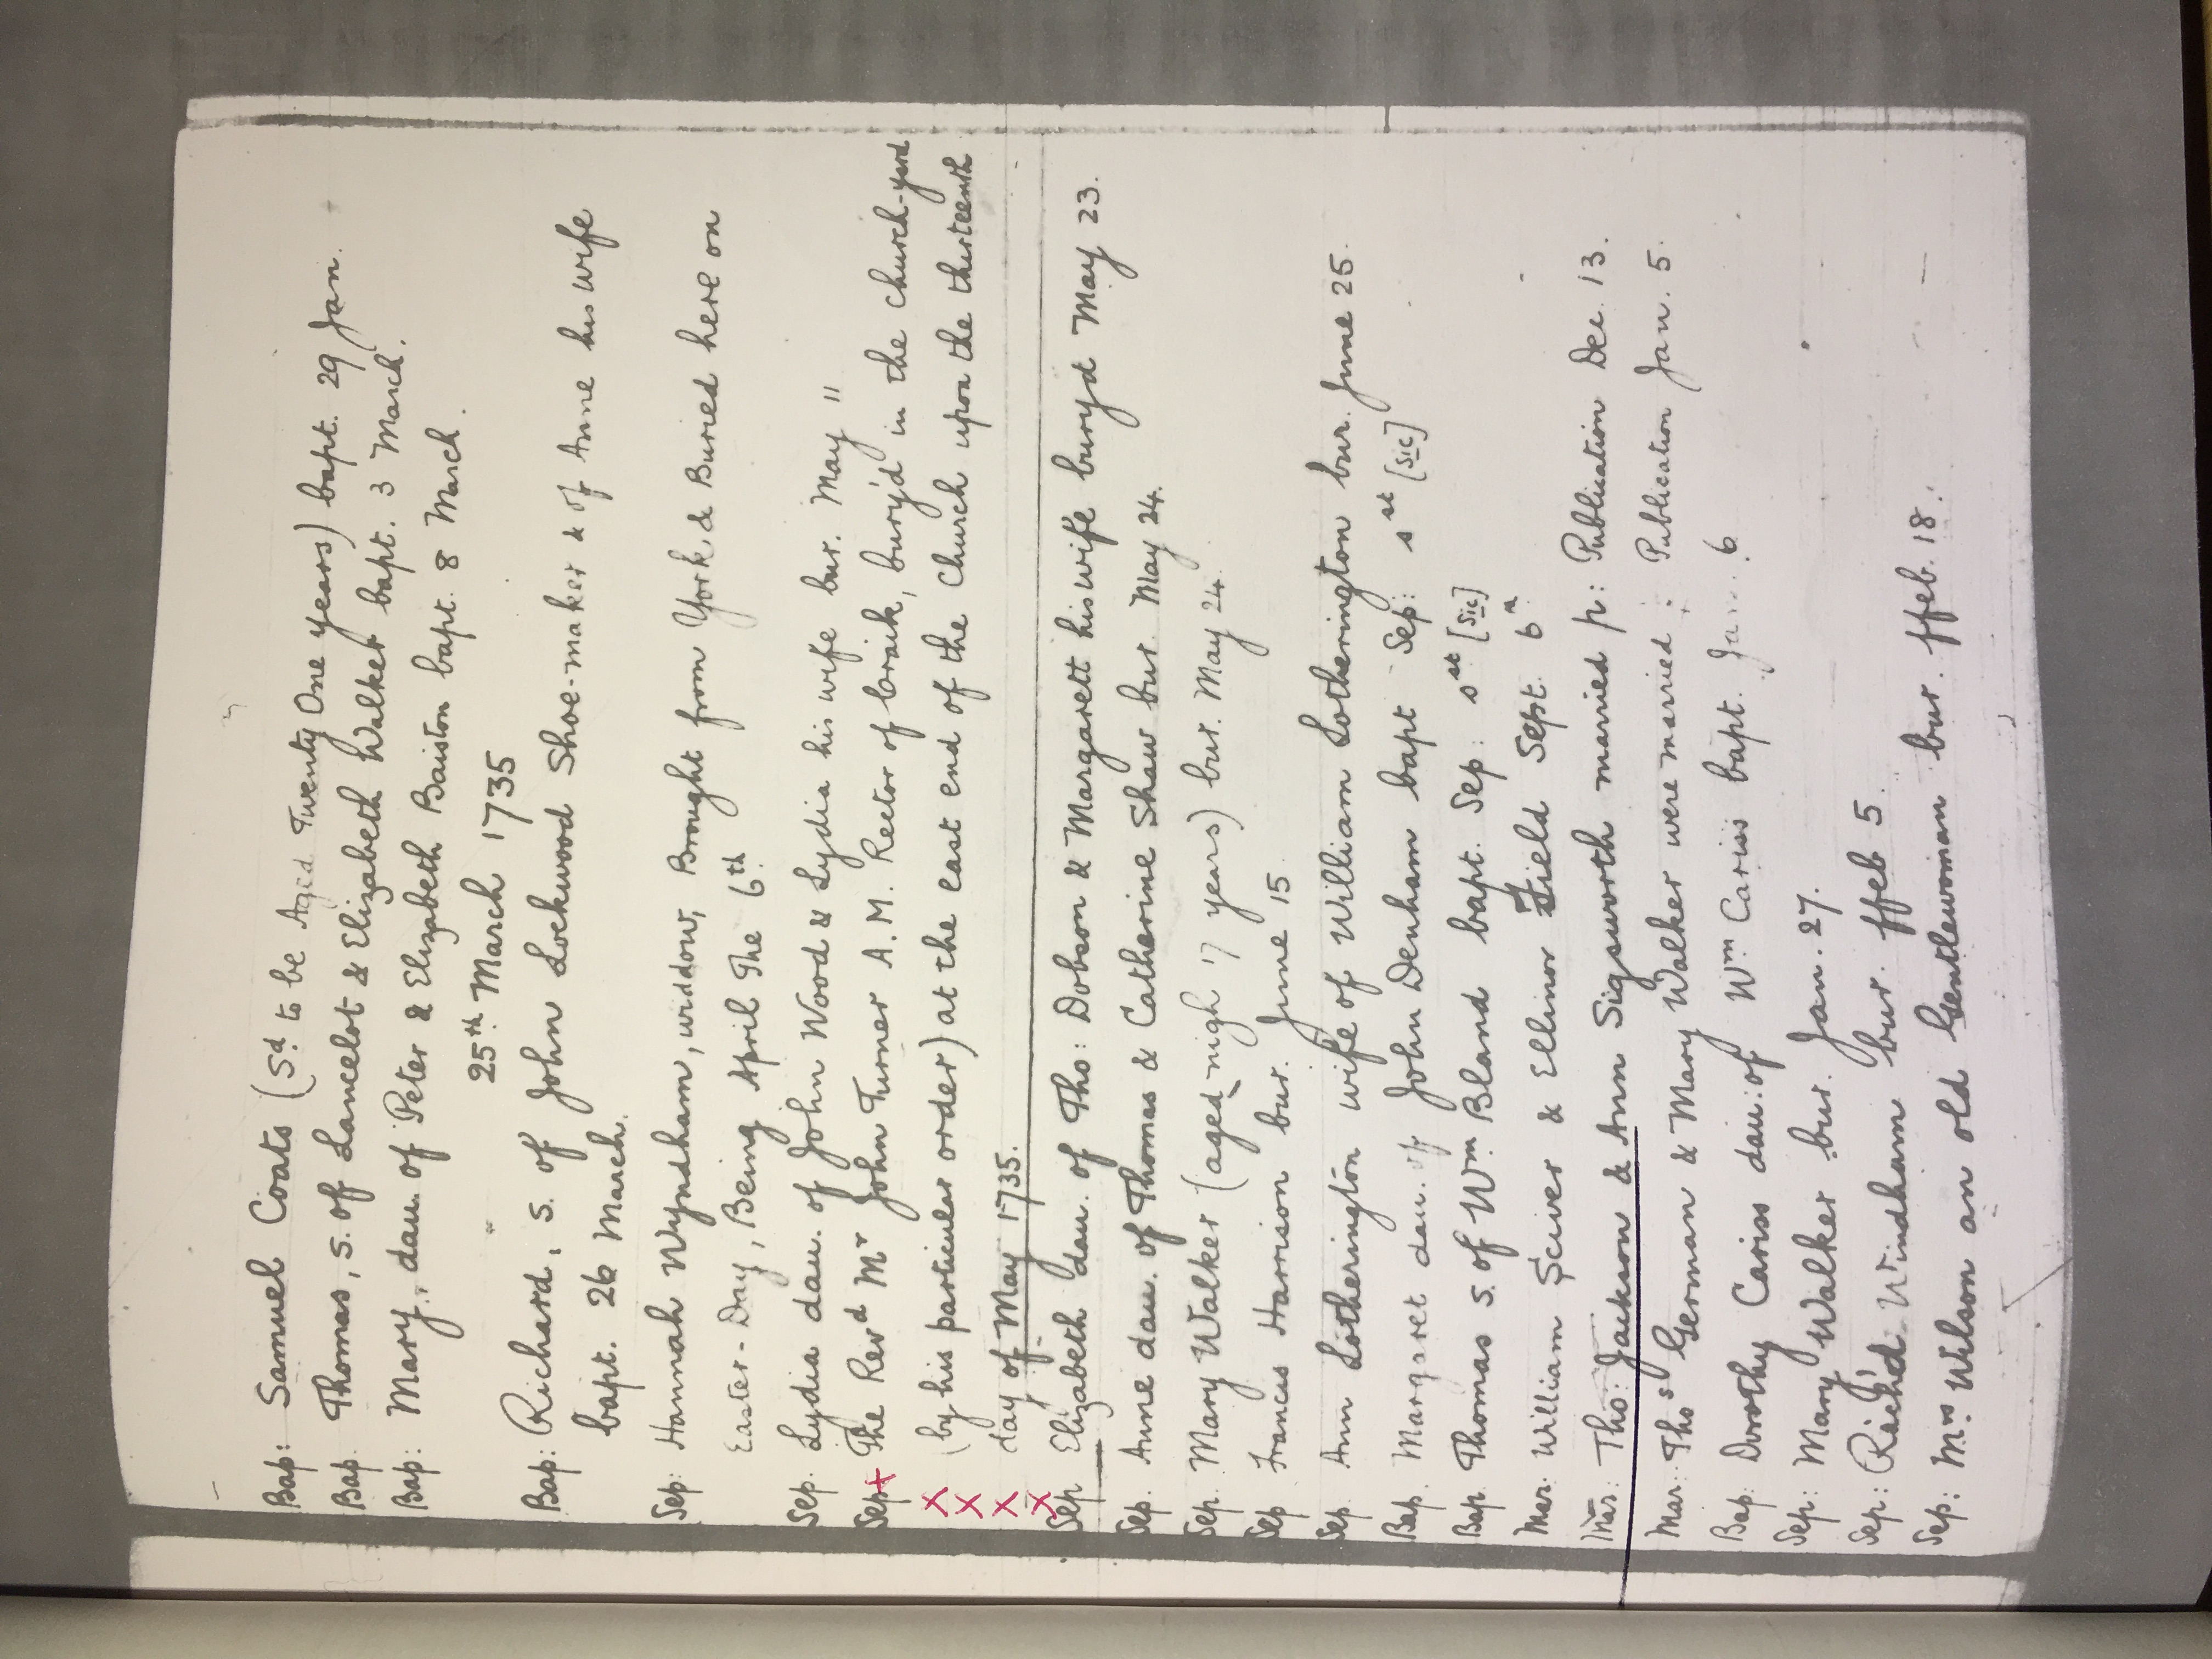 Bap: Samuel Coats (Sd. to be Aged Twenty One years) bapt. 29 Jan.
Bap. Thomas, s. of Lancelot & Elizabeth Walker bapt. 3 March.
Bap: Mary, dau. of Peter & Elizabeth Baiston bapt. 8 March.
25th March 1735
Bap: Richard, s. of John Lockwood Shoe-maker & of Anne his wife
bapt. 26 March.
Sep: Hannah Wyndham, widdow, Brought from York & Buried here on
Easter-Day, Being April The 6th.
Sep. Lydia dau. of John Wood & Lydia his wife bur. May 11
Sep. The Revd Mr John Turner A.M. Rector of Craik, bury'd in the Church-yard
(by his particular order) at the east end of the Church upon the thirteenth
day of May 1735.
Sep Elizabeth dau. of Tho: Dobson & Margarett his wife buryd May 23.
Sep. Anne dau. of Thomas & Catherine Shaw bur. May 24.
Sep. Mary Walker (aged nigh 7 years) bur. May 24.
Sep Francis Harrison bur. June 15.
Sep. Ann Lotherington wife of William Lotherington bur. June 25.
Bap. Margaret dau. of John Denham bapt Sep: sst [sic]
Bap. Thomas s. of Wm Bland bapt. Sep: sst [sic]
Mar. William Sciver & Ellinor Field Sept. 6
Mar: Tho: Jackson & Ann Sigsworth married p: Publication Dec. 13.
Mar: Thos German & Mary Walker were married : Publication Jan. 5.
Bap. Dorothy Cariss dau: of Wm Cariss bapt. Jan. 6.
Sep: Mary Walker bur. Jan. 27.
Sep: Richd. Windham bur. ffeb 5.
Sep: Mrs Wilson an old Gentlewoman bur. ffeb. 18.